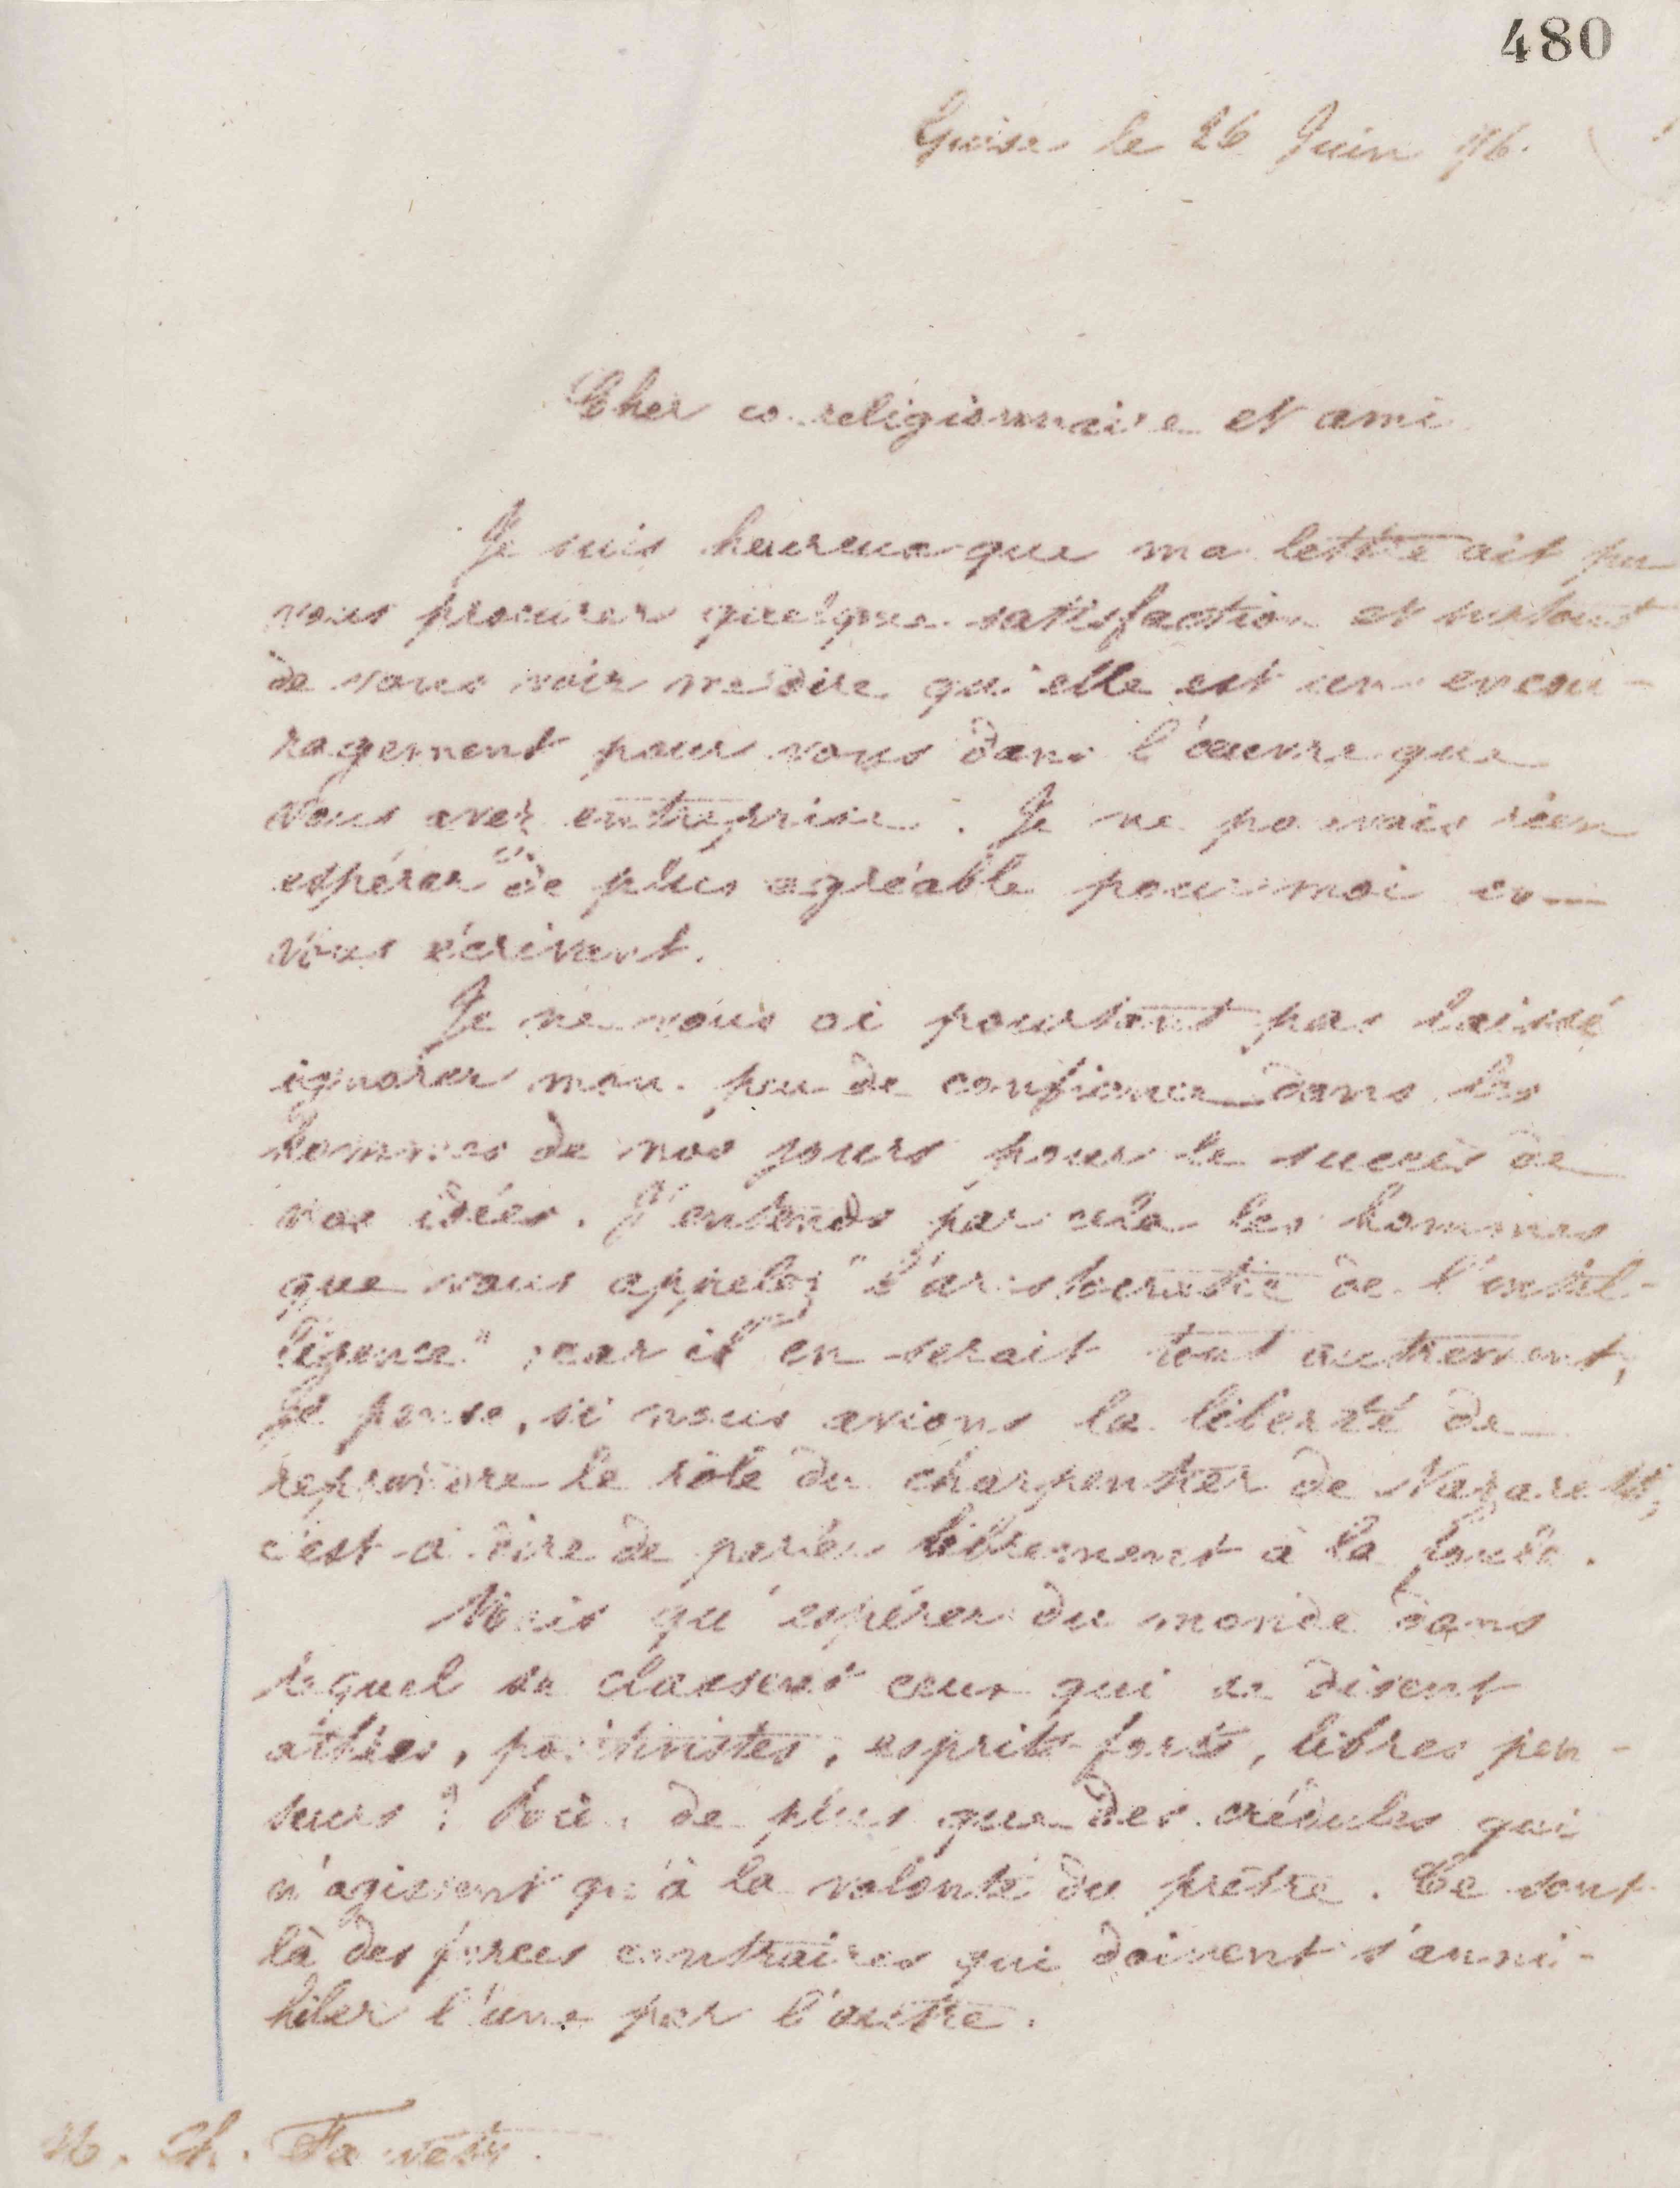 480
Guise le 26 Juin 76.
Cher co-religionnaire et ami
Je suis heureux que ma lettre ait pu
vous procurer quelque satisfaction et surtout
de vous voir me dire qu'elle est un encou-
ragement pour vous dans l'œuvre que
vous avez entreprise. Je ne pouvais rien
espérer de plus agréable pour moi en
vous écrivant.
Je ne vous ai pourtant pas laissé
ignorer mon peu de confiance dans les
hommes de nos jours pour le succès de
nos idées. J'entends par cela les hommes
que vous appelez "l'aristocratie de l'intel-
ligence", car il en serait tout autrement,
je pense, si nous avions la liberté de
reprendre le rôle du charpentier de Nazareth,
c'est-à-dire de parler librement à la foule.
Mais qu'espérer du monde dans
lequel se classent ceux qui se disent
athées, positivistes, esprits forts, libres pen-
seurs? de plus que des crédules qui
n'agissent qu'à la volonté du prêtre. Ce sont
là des forces contraires qui doivent s'anni-
hiler l'une par l'autre.
M. Ch. Fauvety.